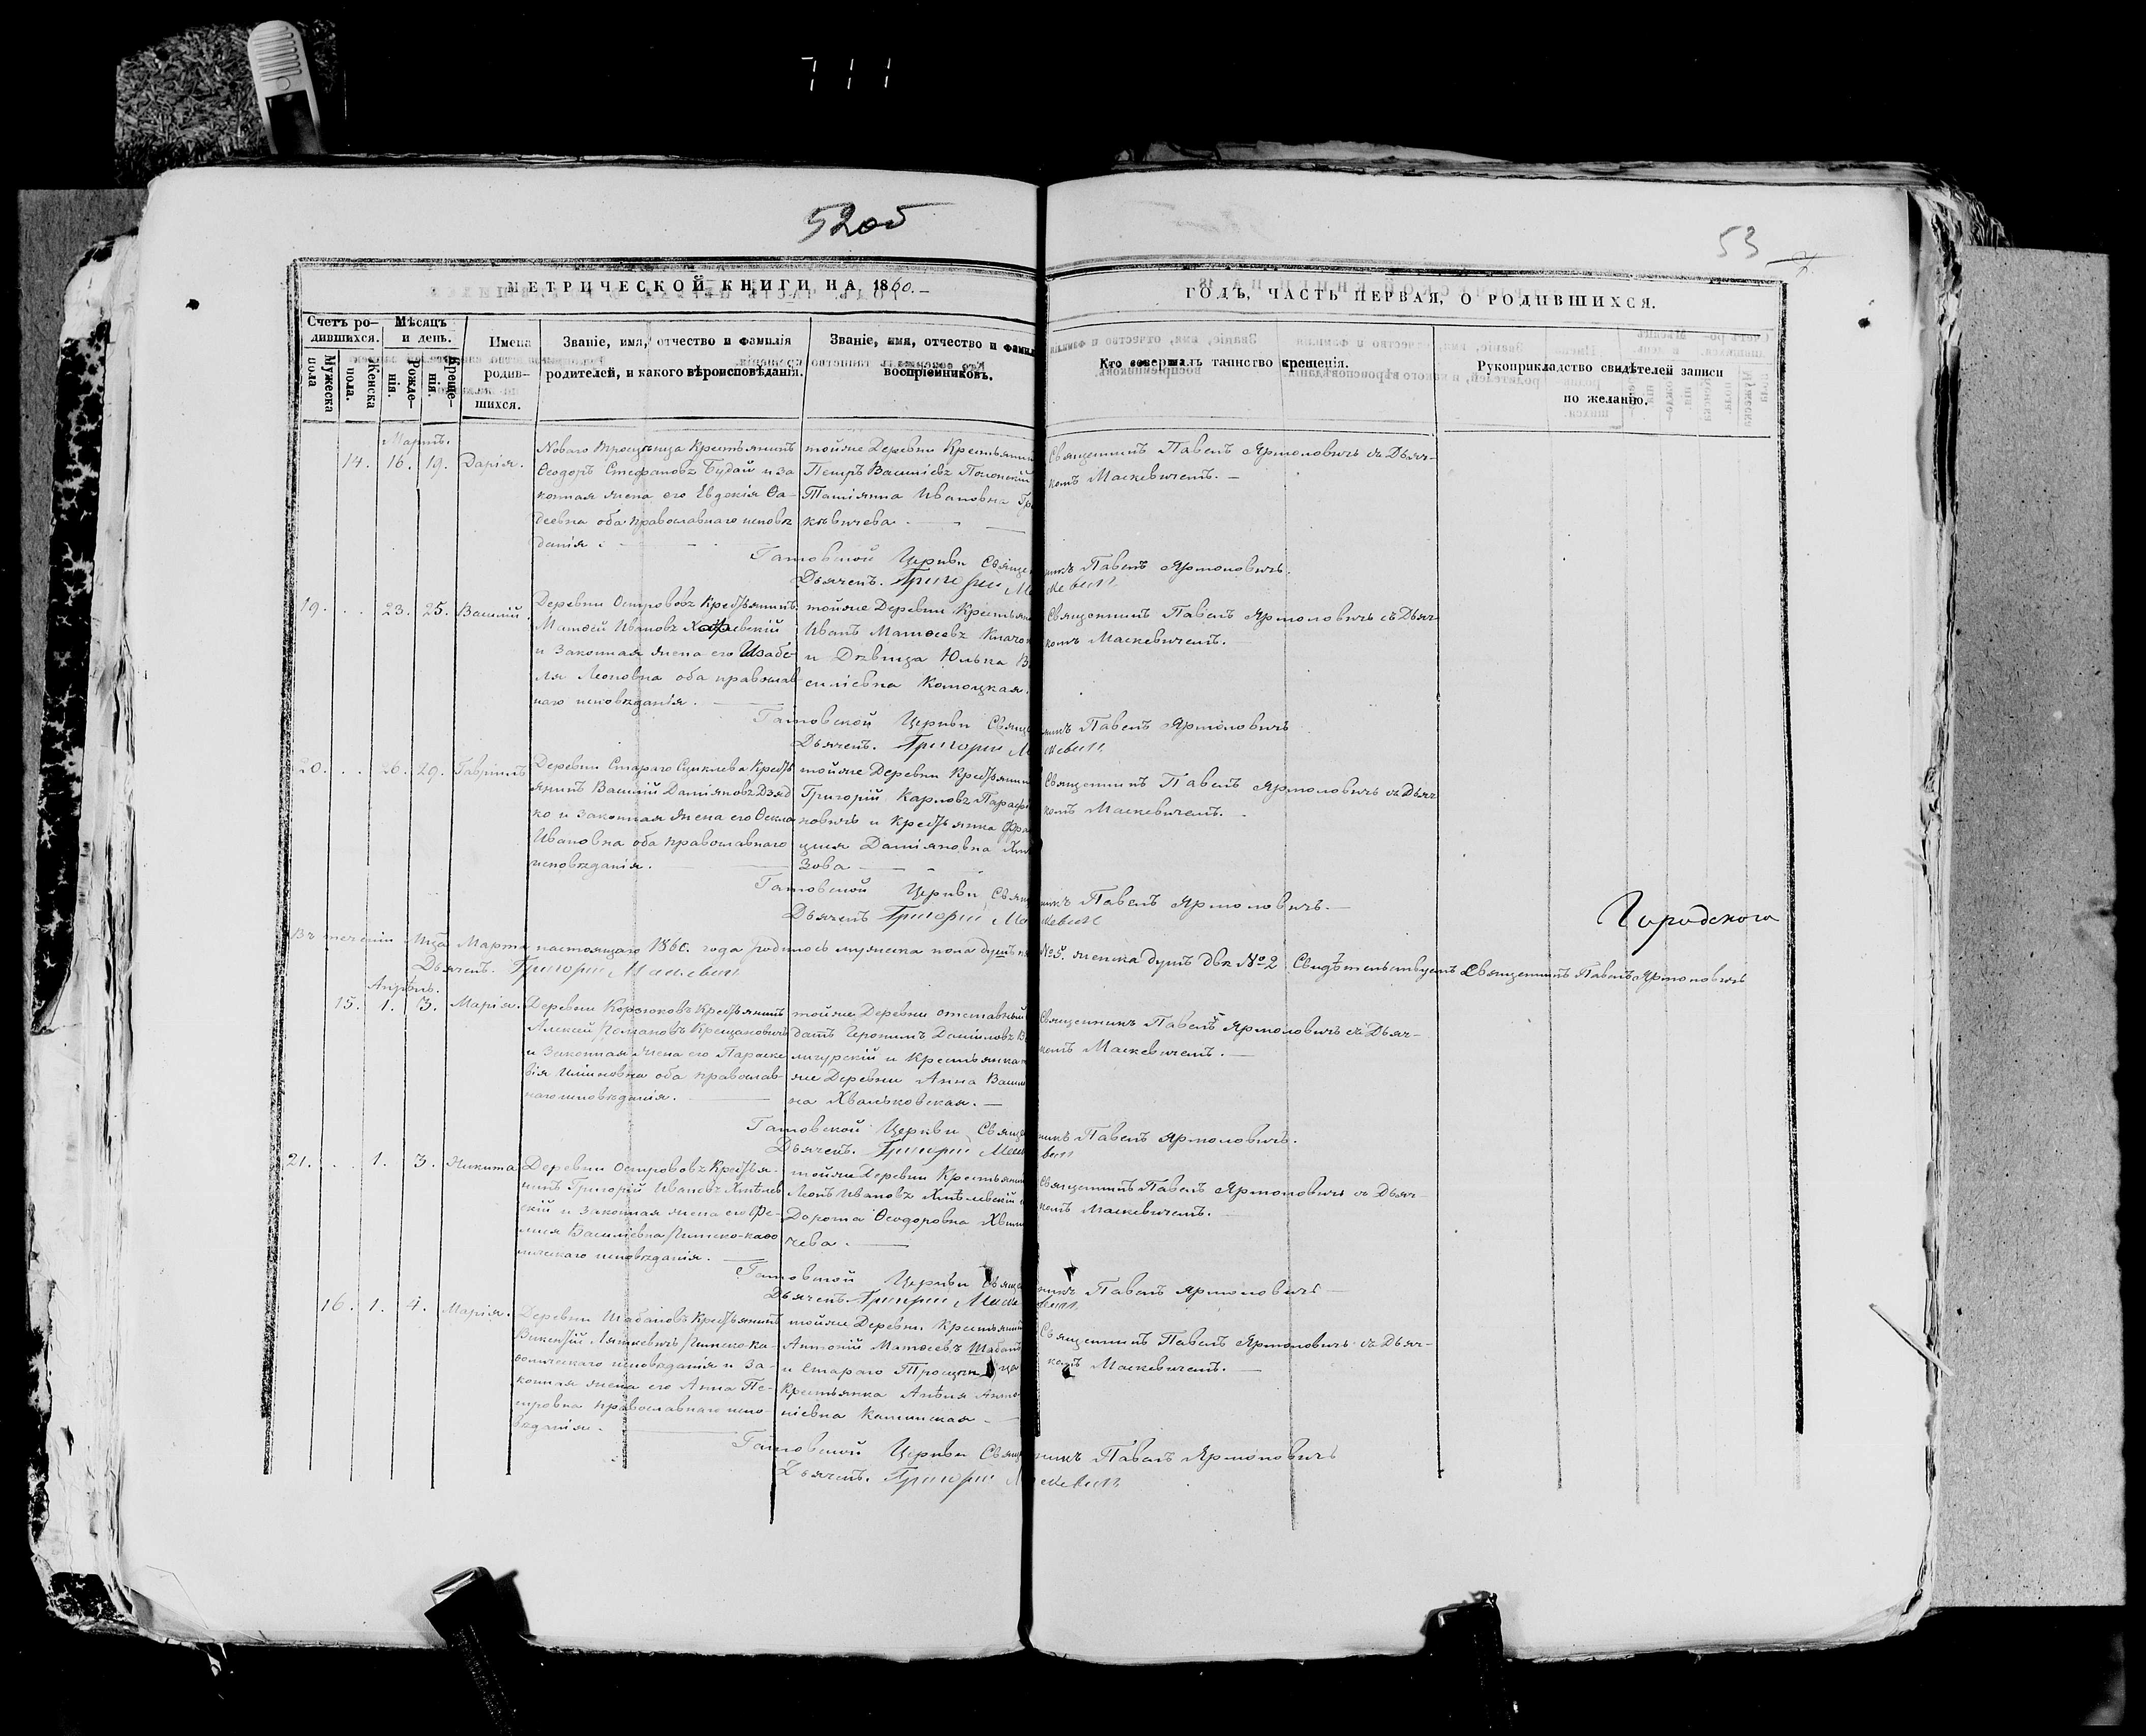 711
52об
53
МЕТРИЧЕСКОЙ КНИГИ НА 1860.-
ГОДЪ, ЧАСТЬ ПЕРВАЯ, О РОДИВШИХСЯ.
Счетъ ро-
дившихся.
Мужеска
пола
Женска
пола.
Мѣсяцъ
и день.
Рожде-
нія.
Креще-
нія.
Имена
родив-
шихся.
Званіе, имя, отчество и фамилія
родителей, и какого вѣроисповѣданія.
Званіе, имя, отчество и фамил
воспріемниковъ.
Кто совершалъ таинство крещенія.
Рукоприкладство свидѣтелей записи
по желанію.
Мартъ.
14. 16. 19. Дарія.
Новаго Тросцянца Крестьянинъ
Ѳеодоръ Стефановъ Будай и за
конная жена его Евдокія Ѳа-
деевна оба православнаго исповѣ
данія.
тойже Деревни Крестьянин
Петръ Василіевъ Полонскій
Татіянна Ивановна Гр
кѣвичева
Священникъ Павелъ Ярмоловичъ съ Дьяч-
комъ Маскевичемъ. —
Гатовской Церкви Священникъ Павелъ Ярмоловичъ.
Дьячекъ. Григорій Маскевичъ
19. . . 23. 25. Василій.
Деревни Острововъ Крестьянинъ
Матѳей Ивановъ
и Законная жена его Изабе-
ля Леоновна оба православ-
наго исповѣданія.
тойже Деревни Крестьян
Иванъ Матѳеевъ
и Дѣвица Юлька Ва
силіевна Комоцкая.
Священникъ Павелъ Ярмоловичъ съ Дьяч-
комъ Маскевичемъ.
Гатовской Церкви Священникъ Павелъ Ярмоловичъ
Дьячекъ. Григорій Маскевичъ
20. . . 26. 29. Гавріилъ
Деревни Стараго Сцыклева Кресть
янинъ Василій Даміяновъ Дзяд
ко и законная жена его Ѳекла
Ивановна оба православнаго
исповѣданія.
тойже Деревни Крестьянин
Григорій Карповъ Параф
новичъ и Крестьянка Фра
цыся Даміяновна
Зова
Священникъ Павелъ Ярмоловичъ съ Дьяч
комъ Маскевичемъ.
Гатовской Церкви Священникъ Павелъ Ярмоловичъ. —
Дьячекъ Григорій Маскевичъ
Городскога
Въ теченіи Мца Марта настоящаго 1860. года родилось мужеска пола душъ №5. женска душъ двѣ №2 Свидѣтельствуетъ Священникъ Павелъ Ярмоловичъ
Дьячекъ. Григорій Маскевичъ
Апрѣль.
15. 1. 3. Марія.
Деревни Корзюковъ Крестьянинъ
Алексій Романовъ Крещановичъ
и Законная жена его Параске
вія Иліиновна оба православ-
наго исповѣданія.
тойже Деревни отставный
датъ Іеронимъ Даніиловъ В
лигурскій и Крестьянка
же Деревни Анна Васил
на Хвальковская. —
Священникъ Павелъ Ярмоловичъ съ Дьяч-
комъ Маскевичемъ. —
Гатовской Церкви Священникъ Павелъ Ярмоловичъ.
Дьячекъ. Григорій Маскевичъ
21. . . 1. 3. Никита
Деревни Острововъ Крестья-
нинъ Григорій Ивановъ Хмѣлев
скій и законная жена его Фе-
лися Василіевна Римско-като
лическаго исповѣданія.
тойже Деревни Крестьянин
Леонъ Ивановъ Хмѣлевскій и
Дорота Ѳеодоровна
чева.
Священникъ Павелъ Ярмоловичъ съ Дьяч-
комъ Маскевичемъ.
Гатовской Церкви Священникъ Павелъ Ярмоловичъ —
Дьячекъ Григорій Маскевичъ
16. 1. 4. Марія.
Деревни Шабановъ Крестьянинъ
Викентій Ляшкевичъ Римско-ка-
ѳолическаго исповѣданія и за-
конная жена его Анна Пе-
тровна православнаго испо-
вѣданія.
тойже Деревни Крестьянинъ
Антоній Матѳеевъ Шабанъ
и Стараго Тросцянца
Крестьянка Анѣля Анто-
ніевна Калинская. —
Священникъ Павелъ Ярмоловичъ съ Дьяч-
комъ Маскевичемъ. —
Гатовской Церкви Священникъ Павелъ Ярмоловичъ
Дьячекъ. Григорій Маскевичъ